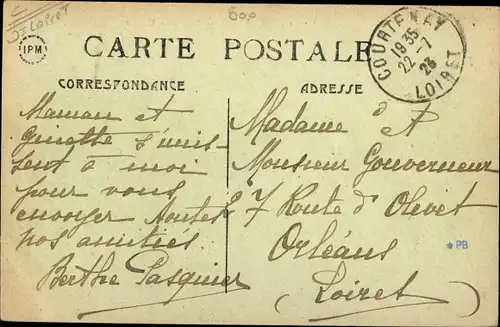 Dt Loiret
500
IPM
CARTE POSTALE
COURTENAY
19 35
22-7
23
LOIRET
CORRESPONDANCE
ADRESSE
Maman et
Ginette s'unis-
sent à moi
pour vous
envoyer toutes
nos amitiés.
Berthe Pasquier
Madame &
Monsieur Gouverneur
7 Route d'Olivet
Orléans
(Loiret)
*PB